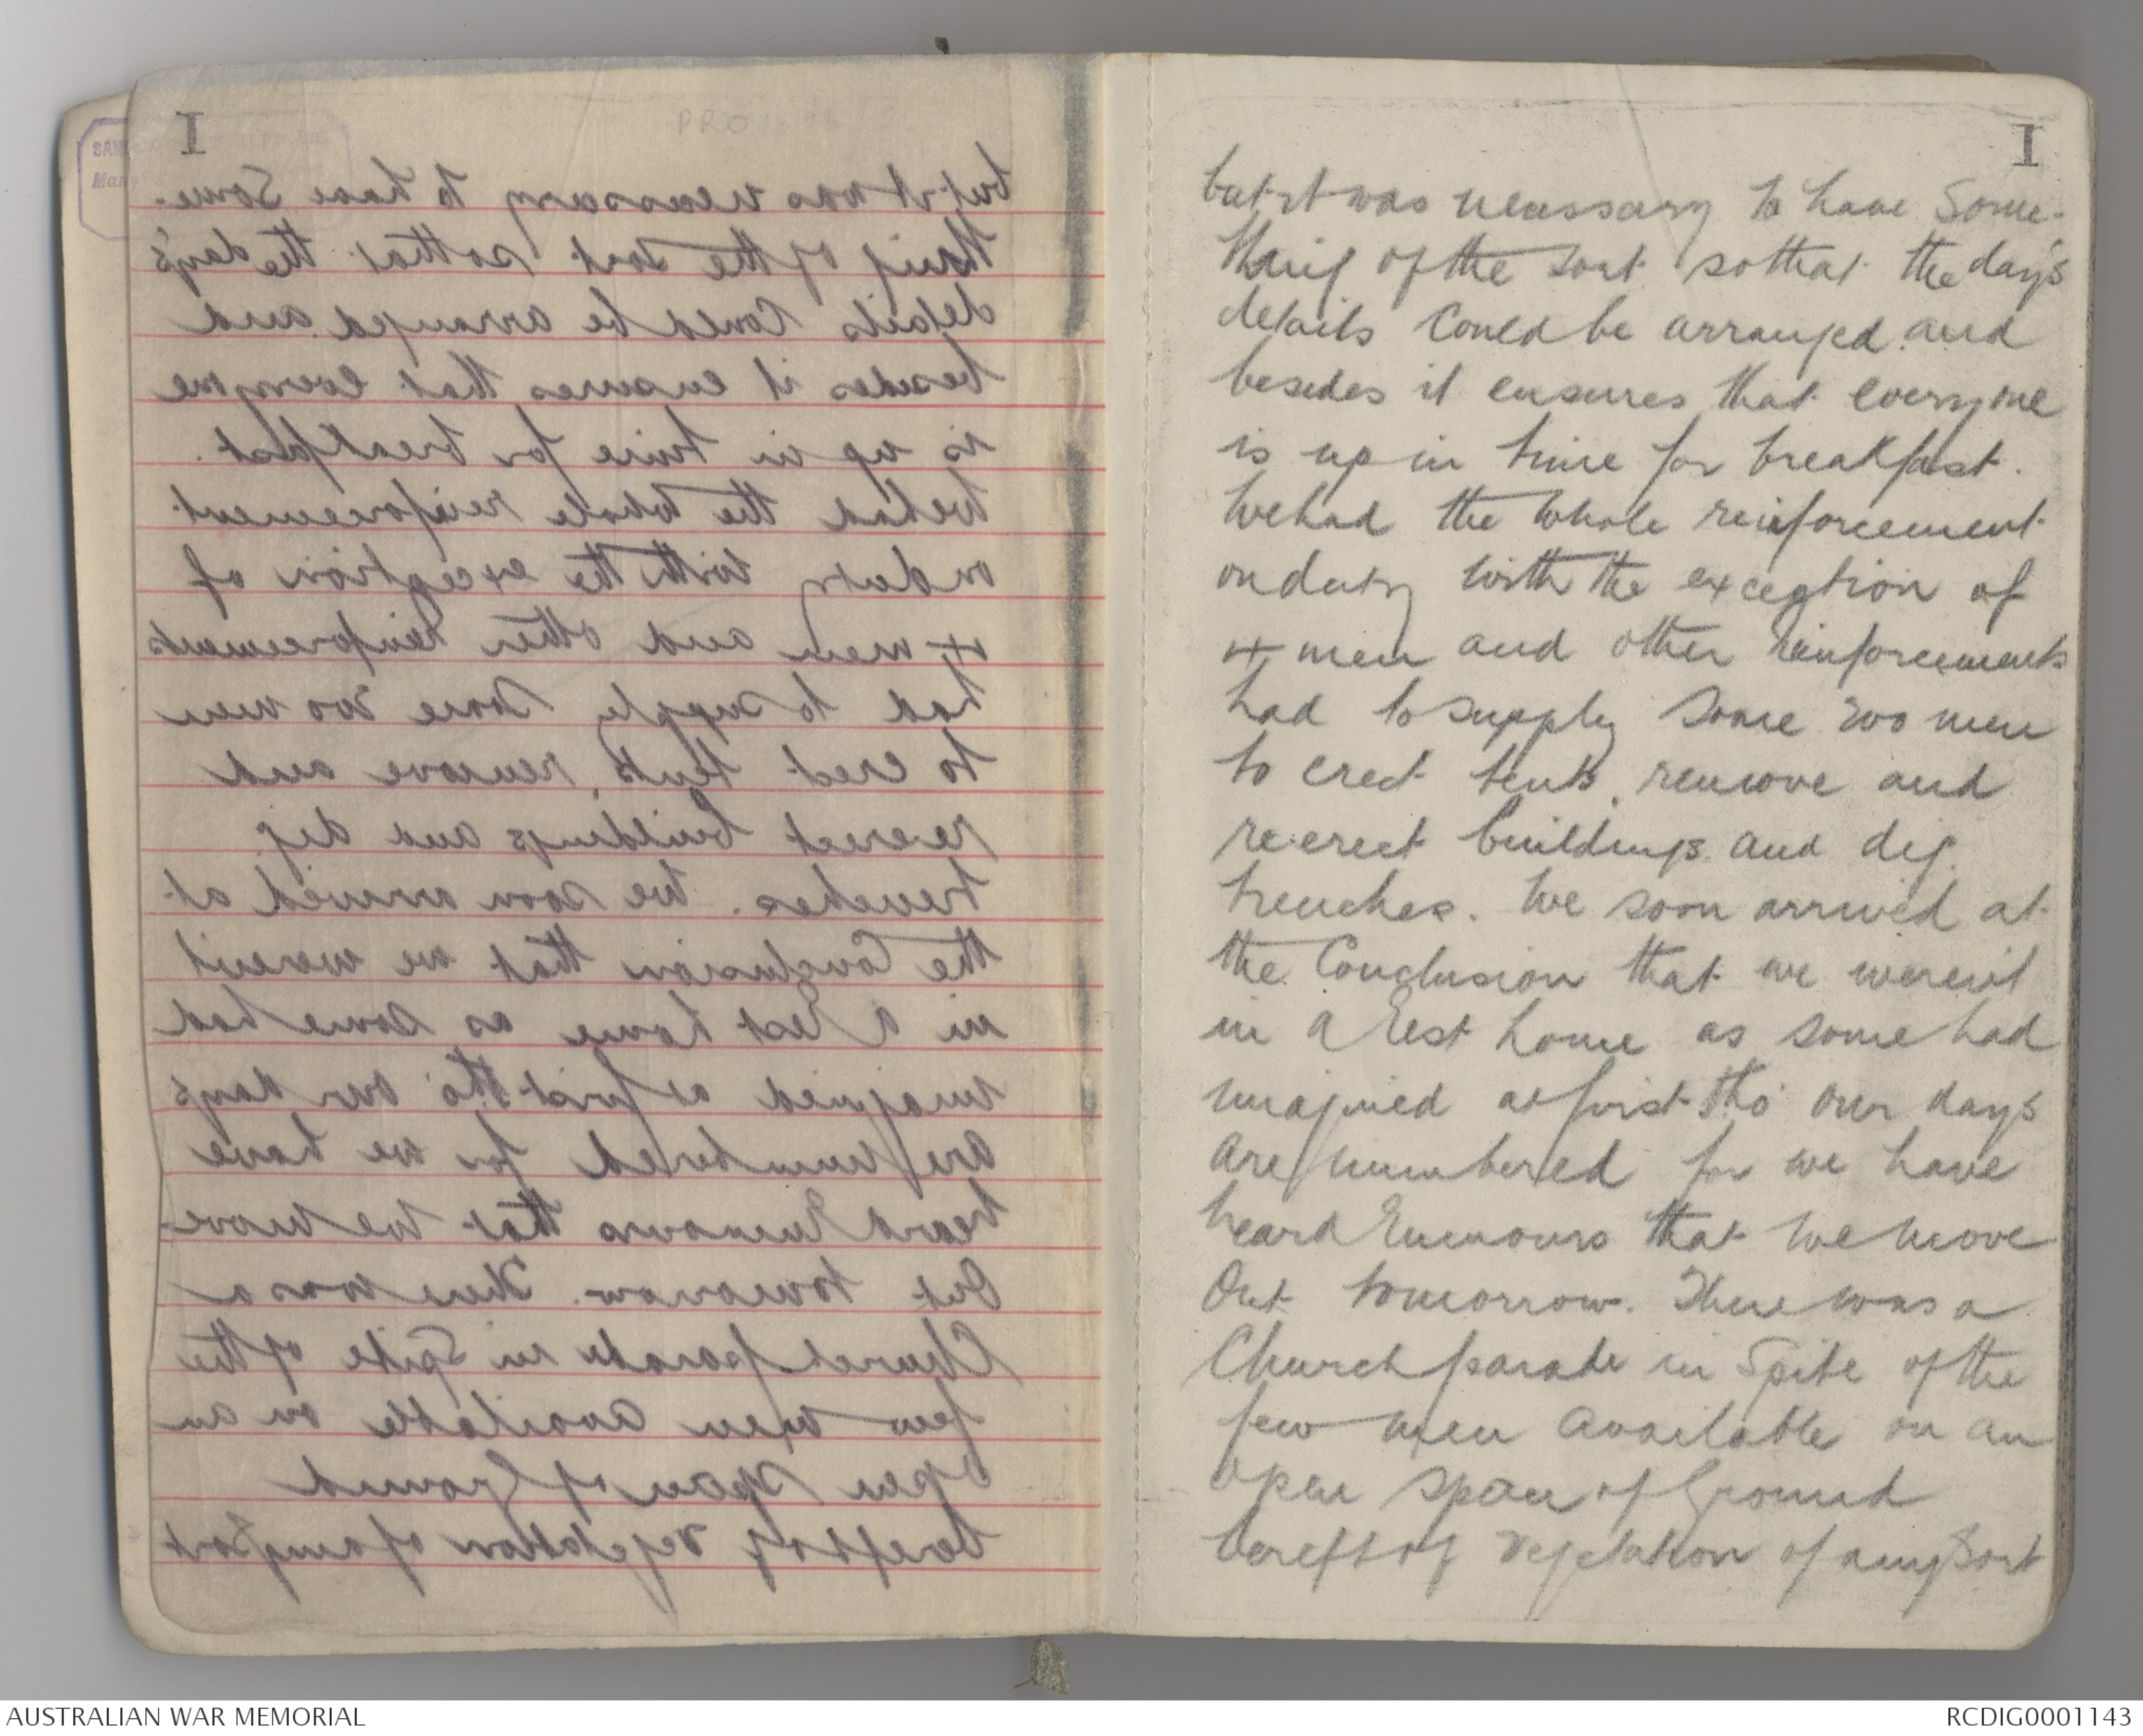 I
but it was necessary to have some-
thing of the sort so that the day's
details could be arranged and
besides it ensures that everyone
is up in time for breakfast.
We had the whole reinforcement
on duty with the exception of
4 men and other reinforcements
had to supply some 200 men
to erect tents, remove and
re erect buildings and dig
trenches. We soon arrived at
the Conclusion that we weren't
in a Rest home as some had
imagined at first tho' our days
are numbered for we have
heard Rumours that we move
Out tomorrow. There was a
Church parade in Spite of the
few men available on an
open space of Ground
bereft of vegetation of any Sort
PRO
SAN
Man
AUSTRALIAN WAR MEMORIAL
RCDIG0001143